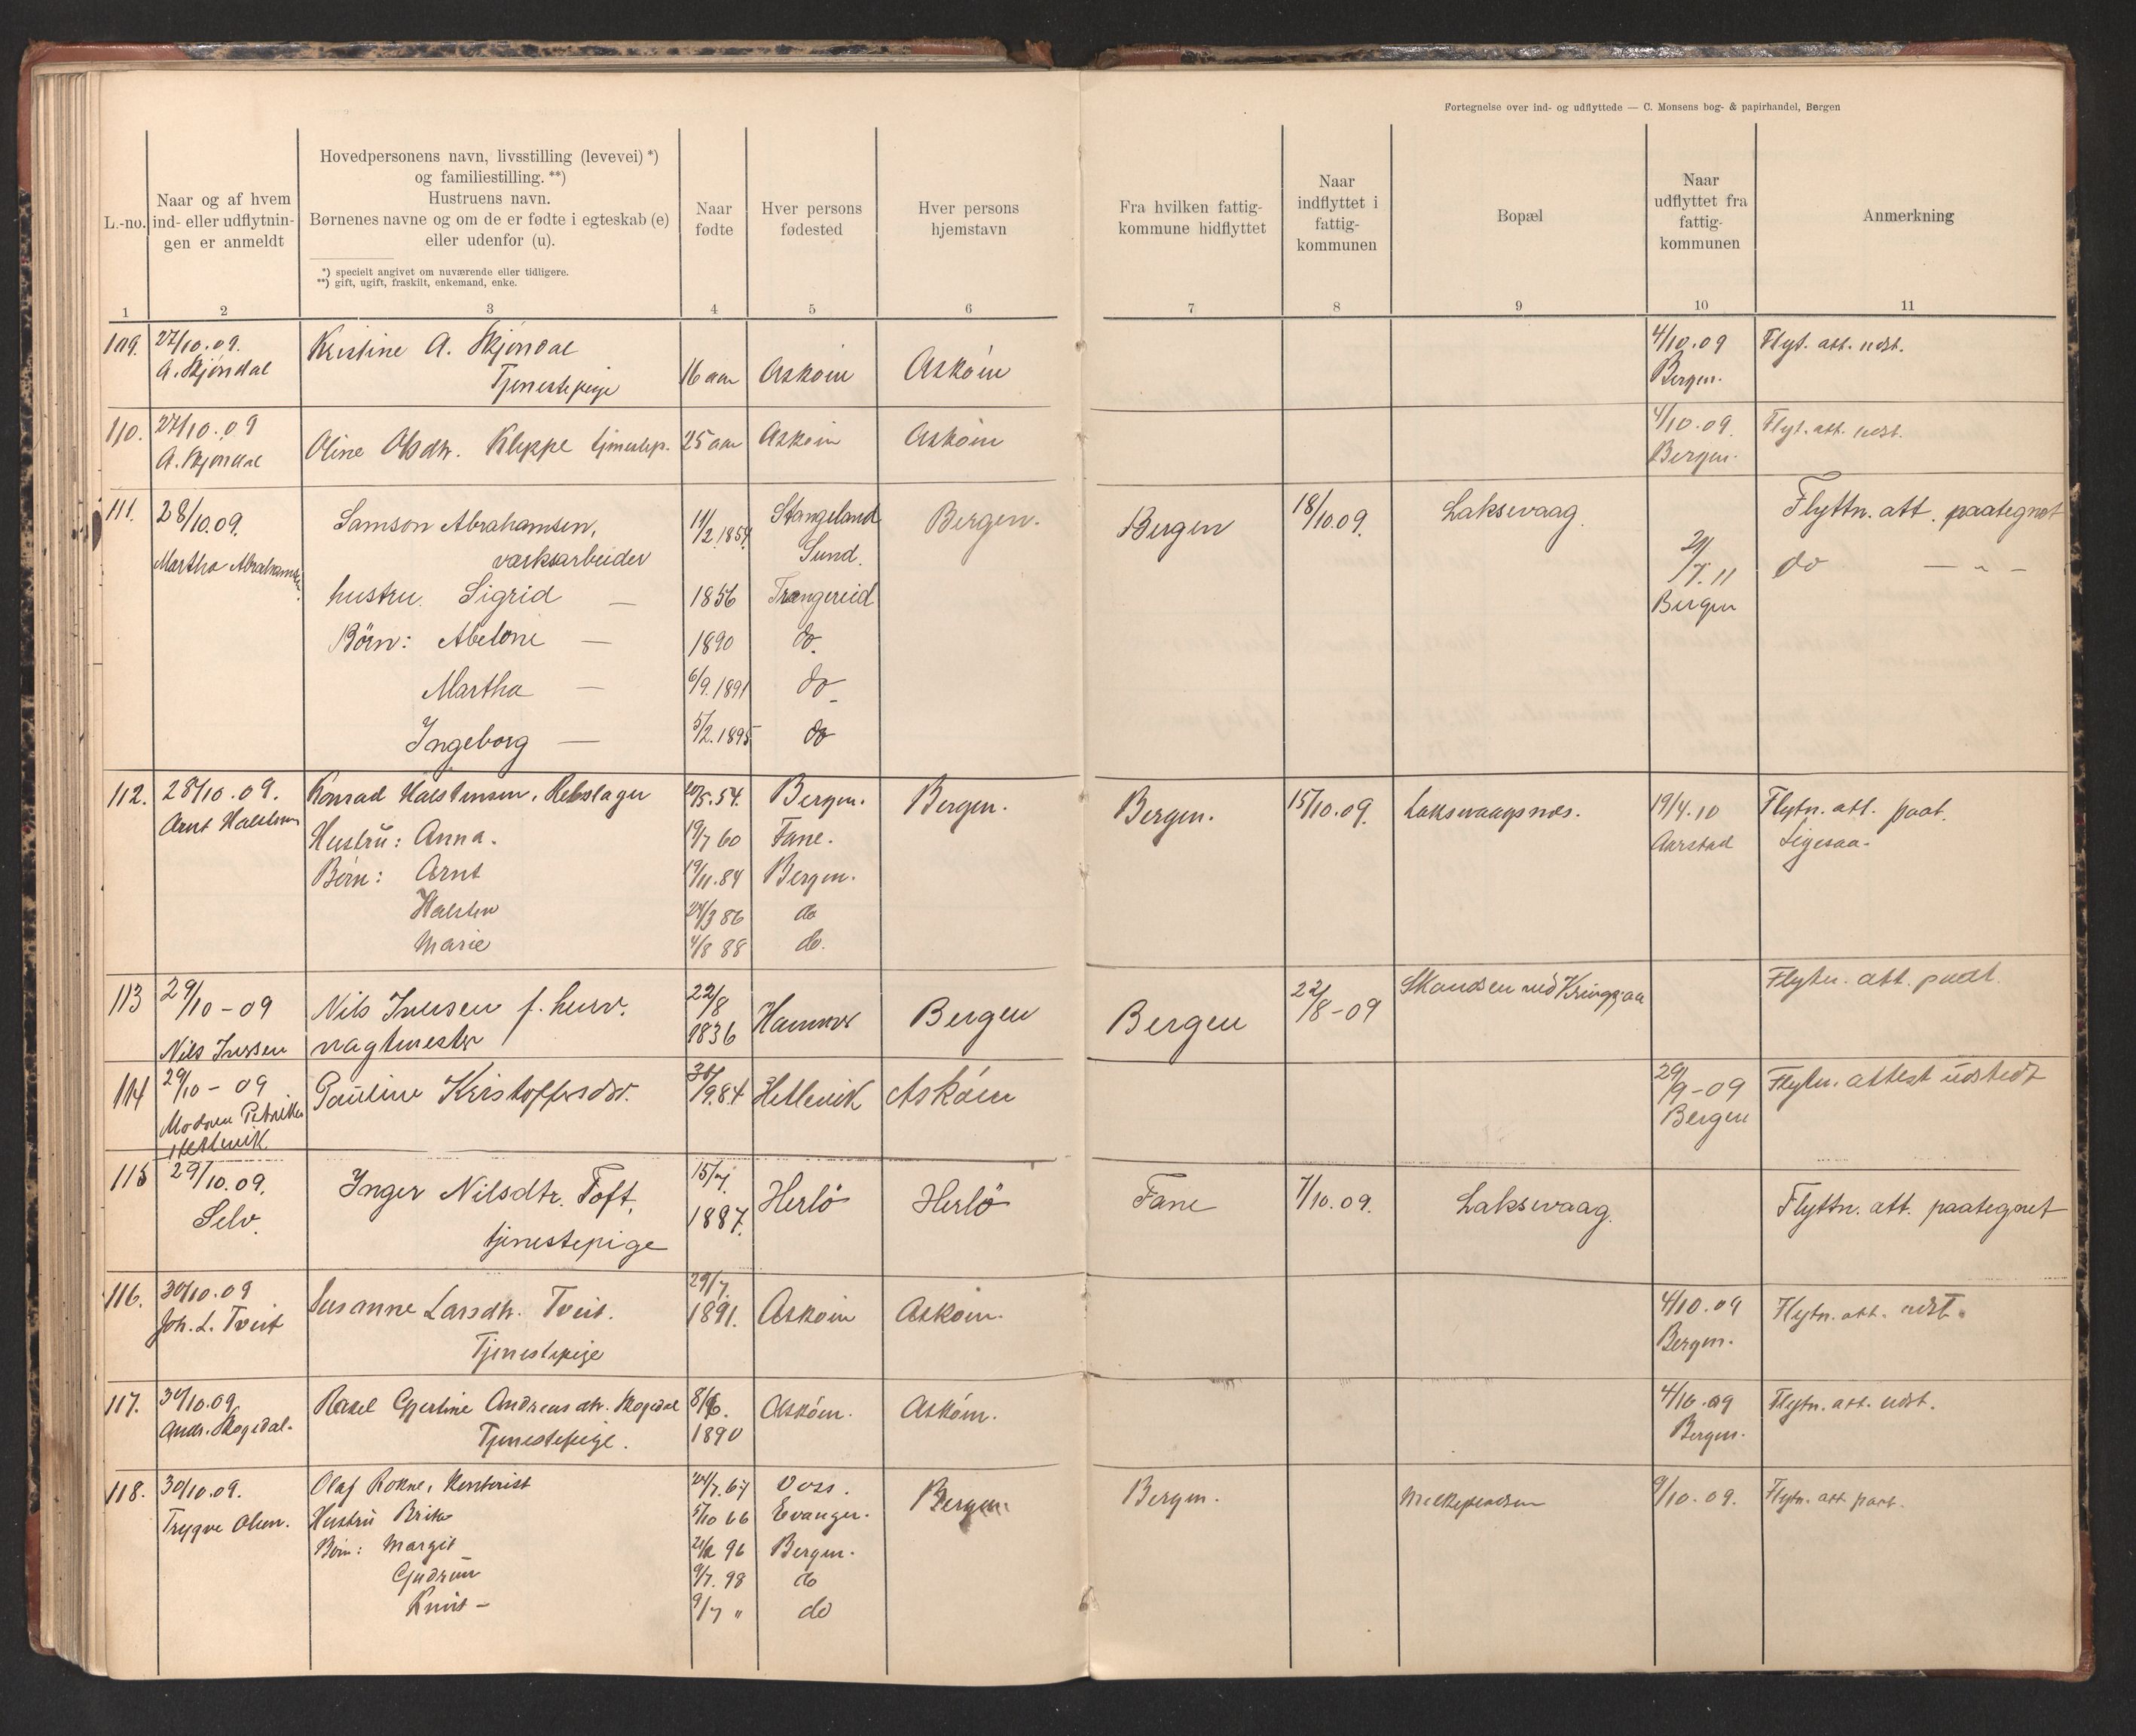 Fortegnelse over ind- og udflyttede — C. Monsens bog- & papirhandel, Bergen
L.-no.
Naar og af hvem
ind- eller udflytnin-
gen er anmeldt
Hovedpersonens navn, livsstilling (levevei) *)
og familiestilling. **)
Hustruens navn.
Børnenes navne og om de er fødte i egteskab (e)
eller udenfor (u).
*) specielt angivet om nuværende eller tidligere.
**) gift, ugift, fraskilt, enkemand, enke.
Naar
fødte
Hver persons
fødested
Hver persons
hjemstavn
Fra hvilken fattig-
kommune hidflyttet
Naar
indflyttet i
fattig-
kommunen
Bopæl
Naar
udflyttet fra
fattig-
kommunen
Anmerkning
1 2 3 4 5 6 7 8 9 10 11
109. 27/10.09. Kristine A. Skjøndal 4/10.09 Flyt. att. udst.
A. Skjøndal Tjenestepige 16 aar Askøin Askøin Bergen.
110. 27/10.09 Oline Olsdtr. Kleppe tjenestep. 25 aar Askøin Askøin 4/10.09. Flyt. att. udst.
A. Skjøndal Bergen.
111. 28/10.09. Samson Abrahamsen, 11/2.1854. Stangeland Bergen. Bergen 18/10.09. Laksevaag. Flyttn. att. paategnet
Martha Abrahamsen værksarbeider Sund. 29/7.11 do — " —
hustru. Sigrid — 1856 Trængereid Bergen
Børn: Abelone — 1890 do.
Martha — 6/9.1891 do
Ingeborg — 5/2.1895 do
112. 28/10.09. Konrad Halstensen, Rebslager 20/5.54. Bergen. Bergen. Bergen. 15/10.09. Laksevaagsnes. 19/4.10 Flytn. att. paat.
Arnt Halstensen Hustru: Anna. 19/7 60 Fane. Aarstad Ligesaa.
Børn: Arnt 19/11.84 Bergen.
Halsten 24/3 86 do
Marie 4/8 88 do.
113 29/10-09 Nils Iversen f. herv. 22/8 Hammer Bergen Bergen 22/8-09 Skandsen ved Kringsjaa Flytn. att. paat.
Nils Iversen vagtmester 1836
114 29/10-09 Pauline Kristoffersdtr. 30/9.84 Hetlevik Askøin 29/9-09 Flytn. attest udstedt
Moderen Petrikke Bergen
Hetlevik
115 29/10.09. Inger Nilsdtr. Toft, 15/7. Herlö Herlö Fane 7/10.09. Laksevaag. Flyttn. att. paategnet
Selv. tjenestepige 1887.
116. 30/10.09 Susanne Larsdtr. Tveit. 29/7. 1891. Askøin Askøin. 4/10.09 Flytn. att. udst.
Joh. L. Tveit Tjenestepige Bergen.
117. 30/10.09 Rakel Gjertine Andreasdtr. Skogedal 8/6. Askøin. Askøin. 4/10.09 Flytn. att. udst.
Andr. Skogedal. Tjenestepige. 1890 Bergen.
118. 30/10.09. Olaf Rokne, 24/7.67 Voss. Bergen. Bergen. 9/10.09. Flytn. att. paat.
Trygve Olsen. Hustru Brita 5/10 66 Evanger.
Børn: Margit 96 Bergen.
Gudrun 9/7. 98 do
Knut — 9/7 " do